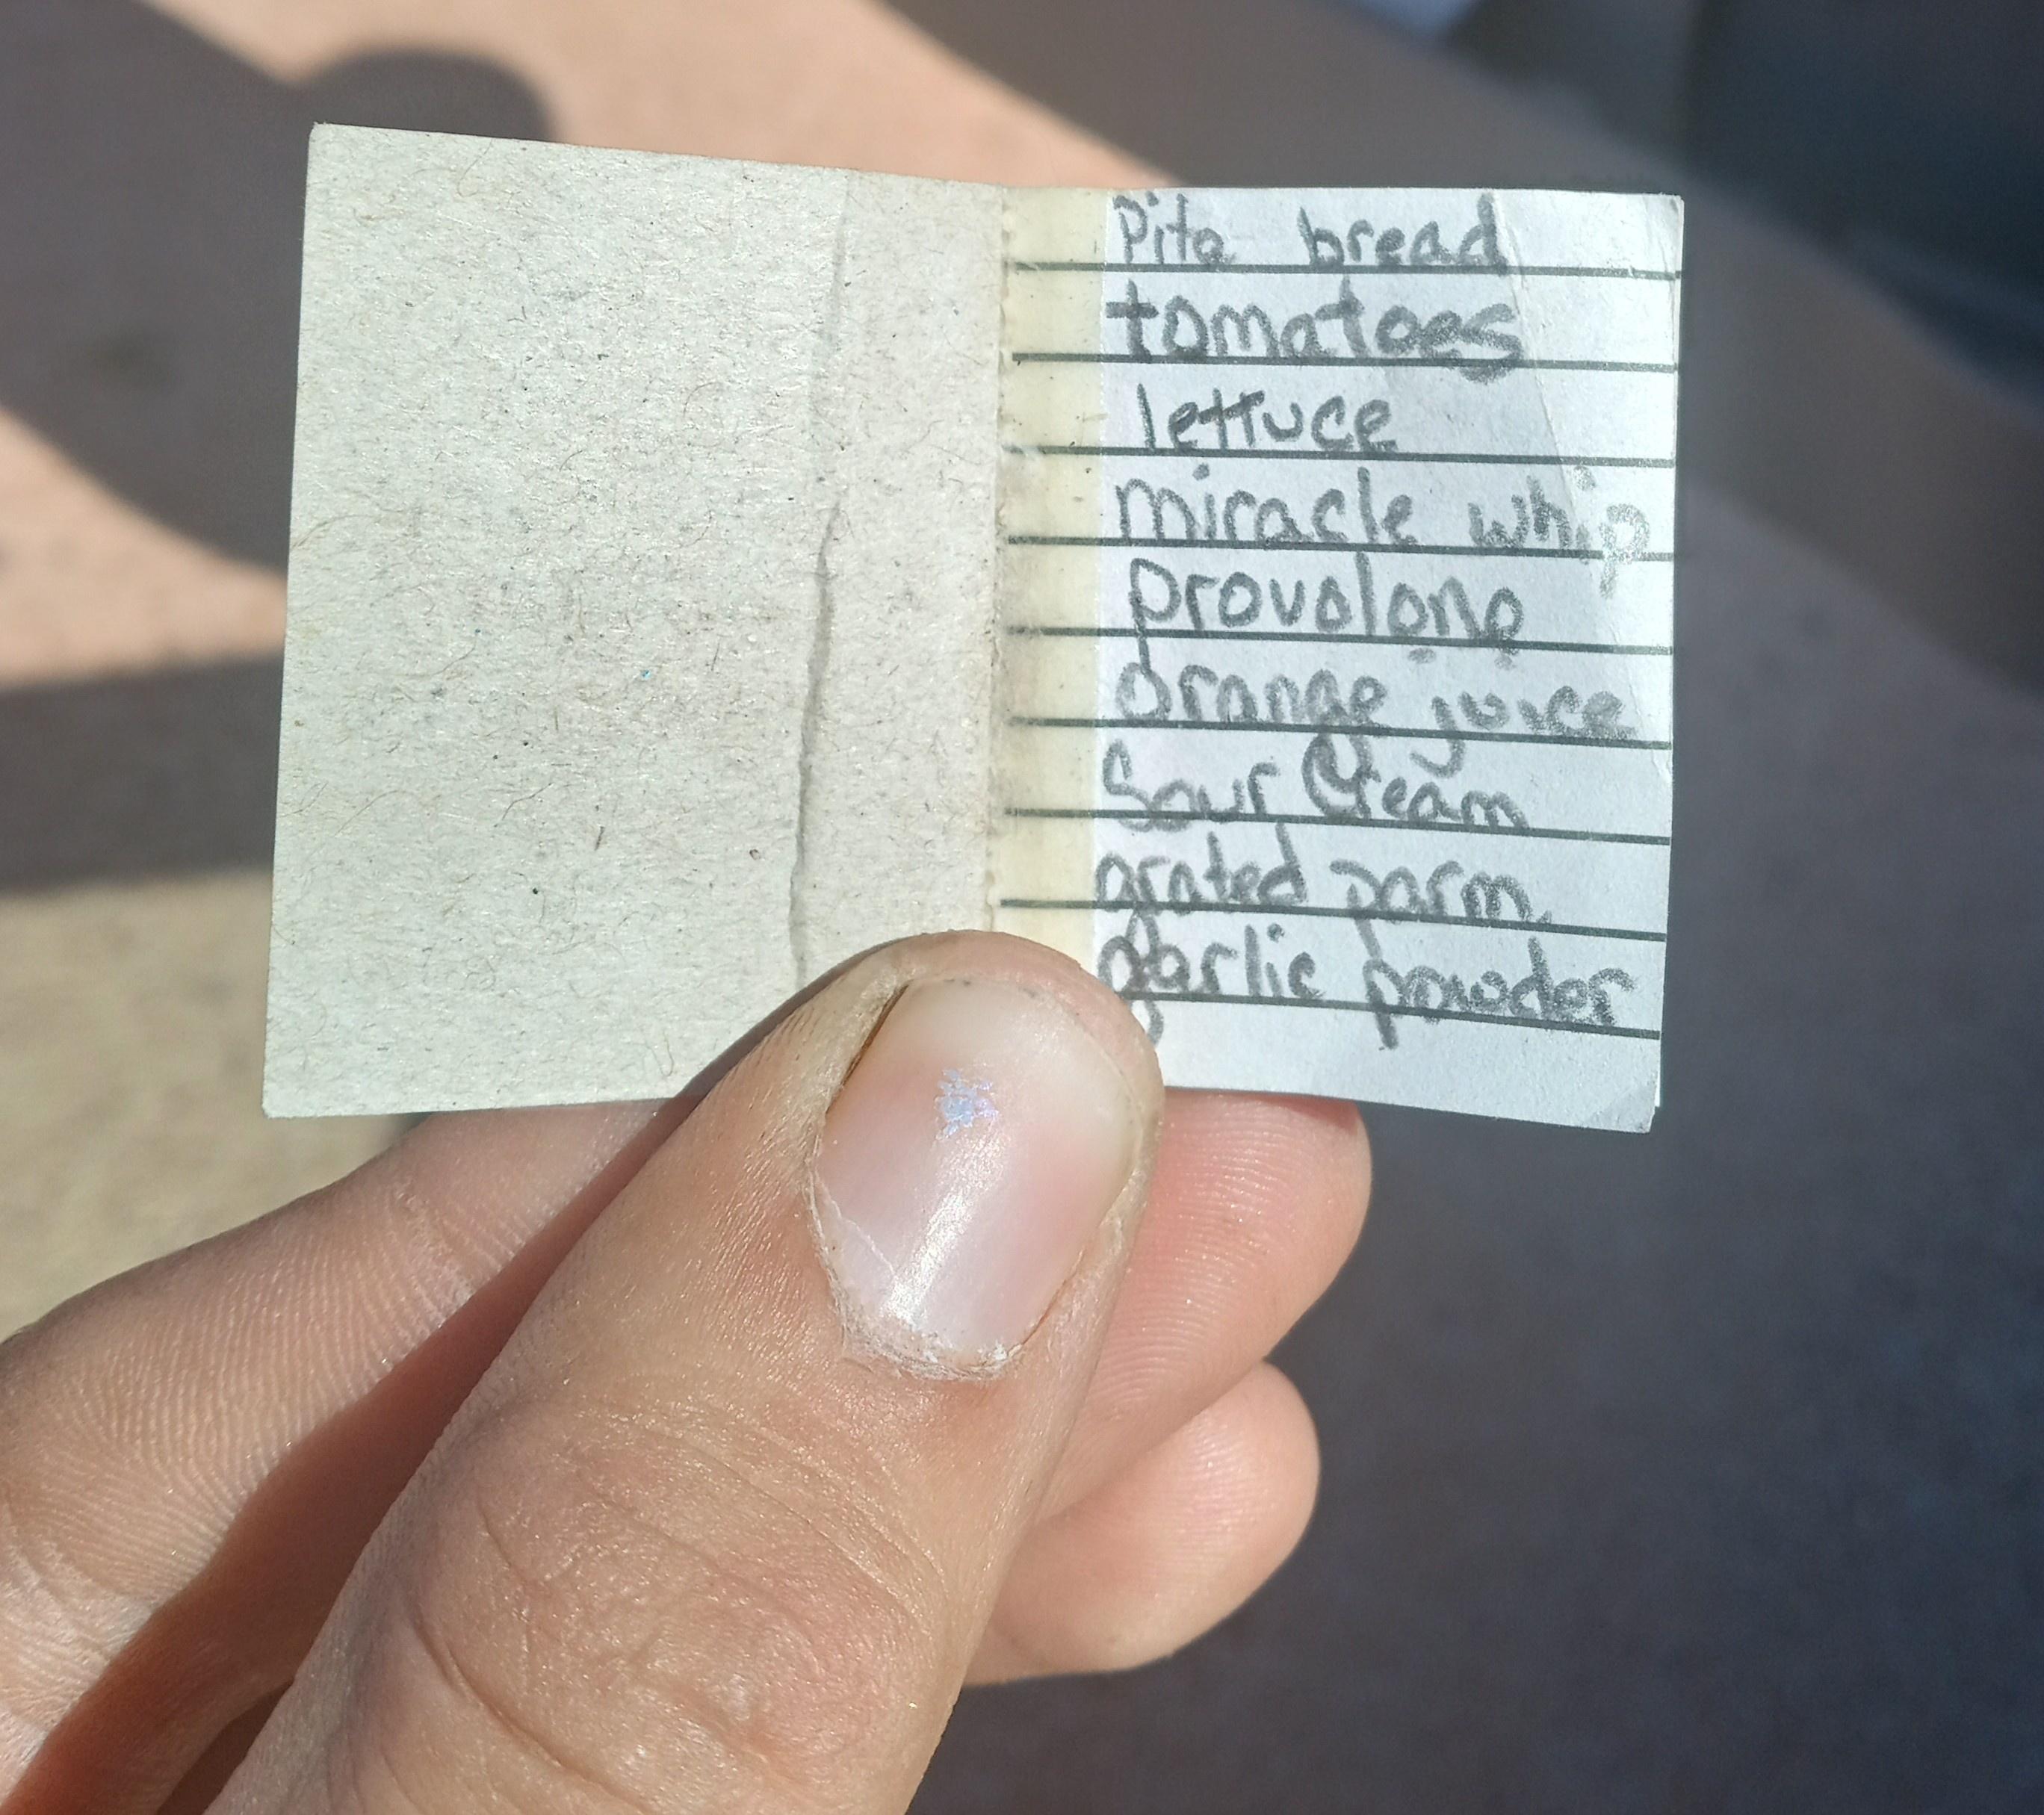 Pita bread
tomatoes
lettuce
miracle whip
provolone
orange juice
Sour Cream
grated parm.
garlic powder